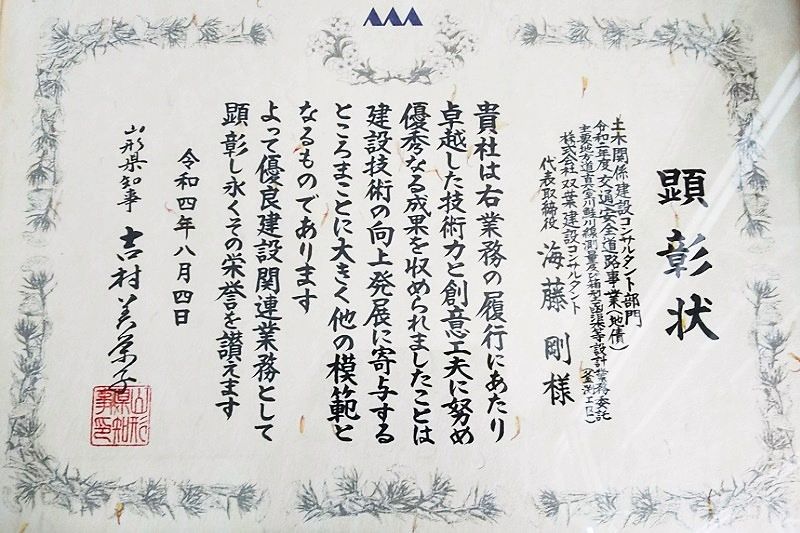 顕彰状
土木関係建設コンサルタント部門
令和二年度交通安全道路事業(地債)
主要地方道真室川鮭川線測量及び箱型函渠等設計業務委託
株式会社双葉建設コンサルタント
代表取締役 海藤剛様
貴社は右業務の履行にあたり
卓越した技術力と創意工夫に努め
優秀なる成果を収められましたことは
建設技術の向上発展に寄与する
ところまことに大きく他の模範と
なるものであります
よって優良建設関連業務として
顕彰し永くその栄誉を讃えます
令和四年八月四日
山形県知事 吉村美栄子
山形
県知
事印